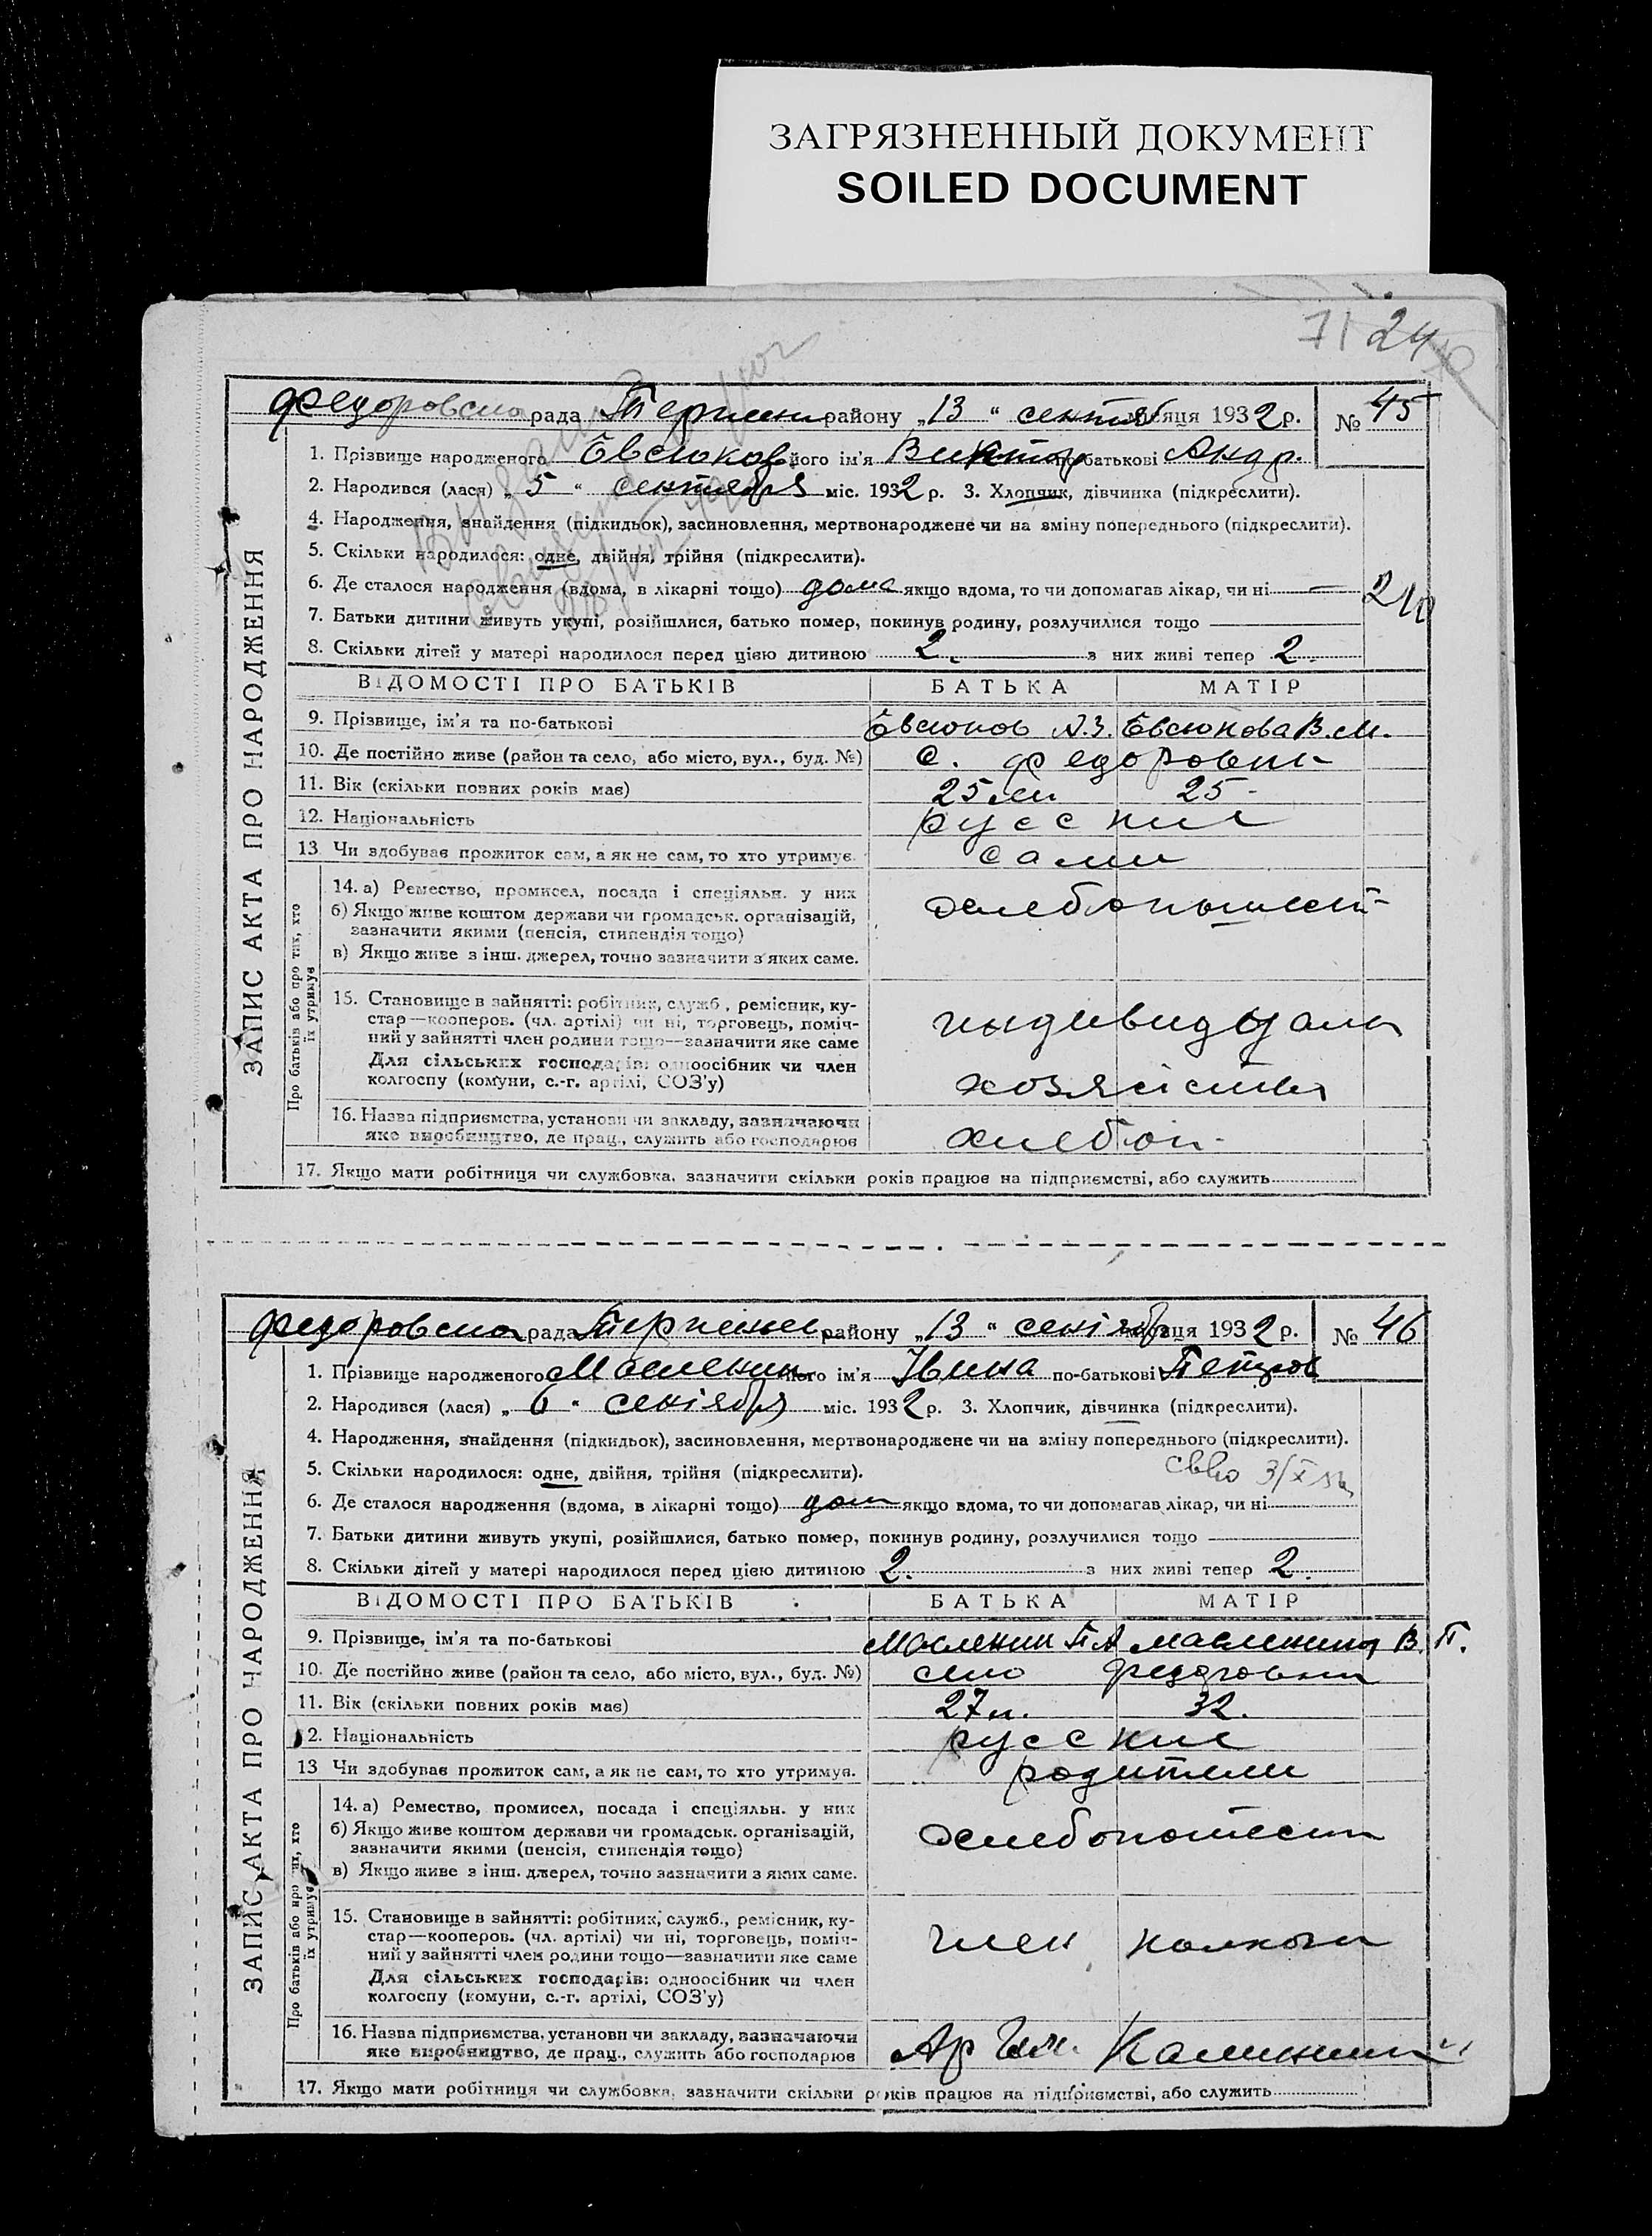 ЗАГРЯЗНЕННЫЙ ДОКУМЕНТ
SOILED DOCUMENT
71 24
ЗАПИС АКТА ПРО НАРОДЖЕННЯ
Федоровска рада Терпени району „13“ сентяб місяця 1932 р. № 45
1. Прізвище народженого Евсюков його ім'я Виктор по-батькові Андр.
2. Народився (лася) „5“ сентября міс. 1932 р. 3. Хлопчик, дівчинка (підкреслити).
4. Народження, знайдення (підкидьок), засиновлення, мертвонароджене чи на зміну попереднього (підкреслити).
5. Скільки народилося: одне, двійня, трійня (підкреслити).
6. Де сталося народження (вдома, в лікарні тощо) дома якщо вдома, то чи допомагав лікар, чи ні —
7. Батьки дитини живуть укупі, розійшлися, батько помер, покинув родину, розлучилися тощо
8. Скільки дітей у матері народилося перед цією дитиною 2. з них живі тепер 2.
ВІДОМОСТІ ПРО БАТЬКІВ БАТЬКА МАТІР
9. Прізвище, ім'я та по-батькові Евсюков А.З. Евсюкова В.М.
10. Де постійно живе (район та село, або місто, вул., буд. №) с. Федоровки
11. Вік (скільки повних років має) 25 25-
12. Національність русские
13 Чи здобуває прожиток сам, а як не сам, то хто утримує. сами
Про батьків або про тих, хто їх утримує
14. а) Ремество, промисел, посада і спеціяльн. у них
б) Якщо живе коштом держави чи громадськ. організацій,
зазначити якими (пенсія, стипендія тощо)
в) Якщо живе з інш. джерел, точно зазначити з яких саме.
15. Становище в зайнятті: робітник, служб., ремісник, ку-
стар—кооперов. (чл. артілі) чи ні, торговець, поміч-
ний у зайнятті член родини тощо—зазначити яке саме
Для сільських господарів: одноосібник чи член
колгоспу (комуни, с.-г. артілі, СОЗ'у)
хозяйства
16. Назва підприємства, установи чи закладу, зазначаючи
яке виробництво, де прац., служить або господарює хлебоп-
17. Якщо мати робітниця чи службовка, зазначити скільки років працює на підприємстві, або служить
ЗАПИС АКТА ПРО НАРОДЖЕННЯ
Федоровска рада Терпение району „13“ сентяб місяця 1932 р. № 46
1. Прізвище народженого Масленин його ім'я Нина по-батькові Петров
2. Народився (лася) „6“ сентября міс. 1932 р. 3. Хлопчик, дівчинка (підкреслити).
4. Народження, знайдення (підкидьок), засиновлення, мертвонароджене чи на зміну попереднього (підкреслити).
5. Скільки народилося: одне, двійня, трійня (підкреслити).
6. Де сталося народження (вдома, в лікарні тощо) дом якщо вдома, то чи допомагав лікар, чи ні
7. Батьки дитини живуть укупі, розійшлися, батько помер, покинув родину, розлучилися тощо
8. Скільки дітей у матері народилося перед цією дитиною 2. з них живі тепер 2.
ВІДОМОСТІ ПРО БАТЬКІВ БАТЬКА МАТІР
9. Прізвище, ім'я та по-батькові Масленин П А Масленина В. П.
10. Де постійно живе (район та село, або місто, вул., буд. №) село Федоровки
11. Вік (скільки повних років має) 27 л. 32.
12. Національність русские
13 Чи здобуває прожиток сам, а як не сам, то хто утримує. родители
Про батьків або про тих, хто їх утримує
14. а) Ремество, промисел, посада і спеціяльн. у них
б) Якщо живе коштом держави чи громадськ. організацій,
зазначити якими (пенсія, стипендія тощо)
в) Якщо живе з інш. джерел, точно зазначити з яких саме.
15. Становище в зайнятті: робітник, служб., ремісник, ку-
стар—кооперов. (чл. артілі) чи ні, торговець, поміч-
ний у зайнятті член родини тощо—зазначити яке саме
член
Для сільських господарів: одноосібник чи член
колгоспу (комуни, с.-г. артілі, СОЗ'у)
16. Назва підприємства, установи чи закладу, зазначаючи
яке виробництво, де прац., служить або господарює
17. Якщо мати робітниця чи службовка, зазначити скільки років працює на підприємстві, або служить